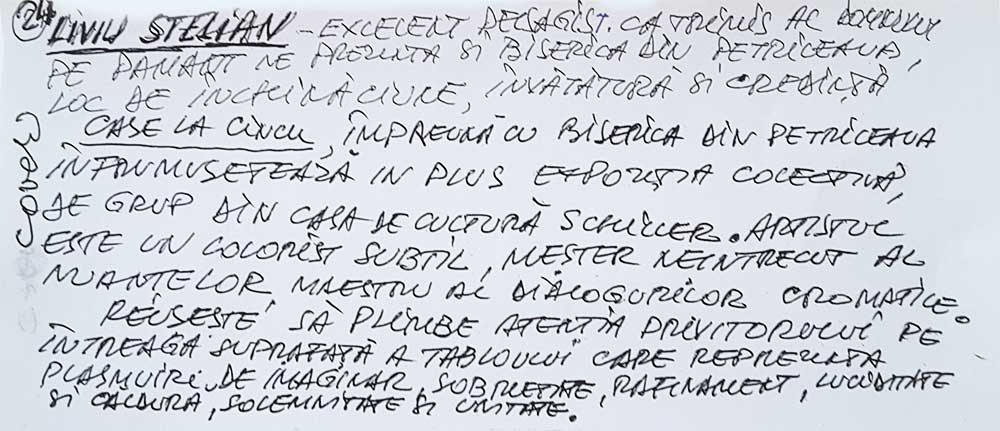 24 LIVIU STELIAN - EXCELENT PEISAGIST. CA TRIMIS AL DOMNULUI
PE PAMANT NE PREZINTA SI BISERICA DIN PETRICEAUA,
LOC DE INCHINACIUNE, ÎNVĂTĂTURĂ SI CREDINȚĂ
CASE LA CINCU, ÎMPREUNĂ CU BISERICA DIN PETRICEAUA
ÎNFRUMUSETEAZĂ IN PLUS EXPOZIȚIA COLECTIVĂ,
DE GRUP DIN CASA DE CULTURĂ SCHILLER. ARTISTUL
ESTE UN COLORIST SUBTIL, MESTER NEINTRECUT AL
NUANTELOR MAESTRU AL DIALOGURILOR CROMATICE.
REUSESTE SĂ PLIMBE ATENTIA PRIVITORULUI PE
ÎNTREAGA SUPRAFAȚĂ A TABLOULUI CARE REPREZINTA
PLASMUIRI DE IMAGINAR, SOBRIETATE, RAFINAMENT, LUCIDITATE
SI CALDURA, SOLEMNITATE SI UNITATE.